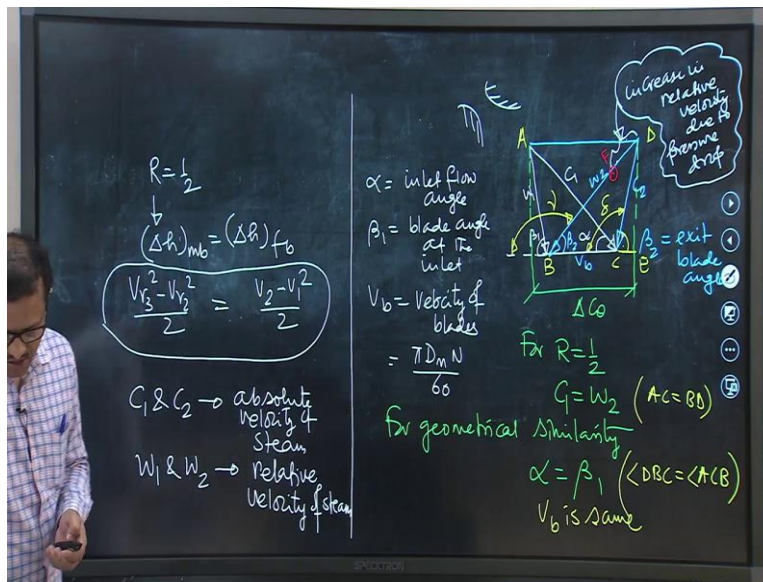 R=1/2
↓
(Δh)mb = (Δh)fb
(Vr3² - Vr2²)/2 = (V2 - V1²)/2
C1 & C2 → absolute
velocity of
steam
W1 & W2 → relative
velocity of steam
α = inlet flow
angle
β1 = blade angle
at the
inlet
Vb = velocity of
blades
= πDmN/60
increase in
relative
velocity
due to
pressure
drop
A
D
F
C1
W2
C2
W1
γ
δ
β1
β2
α
B
Vb
C
E
ΔCω
β2 = exit
blade
angle
For R=1/2
C1 = W2 (AC=BD)
For geometrical similarity
α = β1 (<DBC=<ACB)
Vb is same